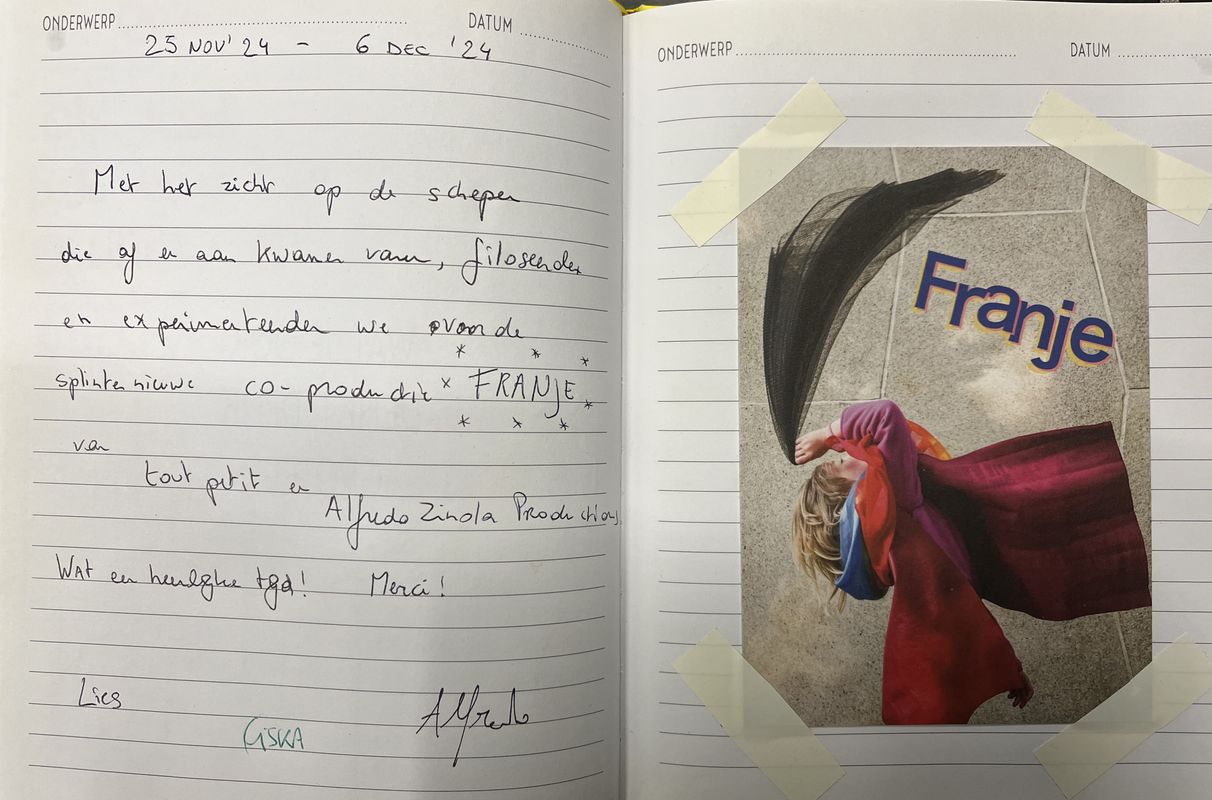 ONDERWERP DATUM
25 NOV '24 - 6 DEC '24
Met het zicht op de schepen
die af en aan kwamen varen, filosofeerden
en experimenteerden we voor de
splinternieuwe co-productie * FRANJE *
van
tout petit en
Alfredo Zinola Productions
Wat een heerlijke tijd! Merci!
Lies
CISKA
Alfredo
ONDERWERP DATUM
Franje